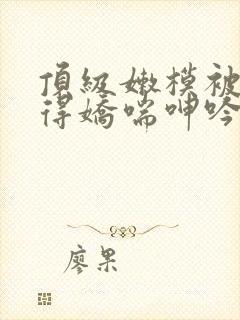 頂級嫩模被
得嬌喘呻吟
廖果